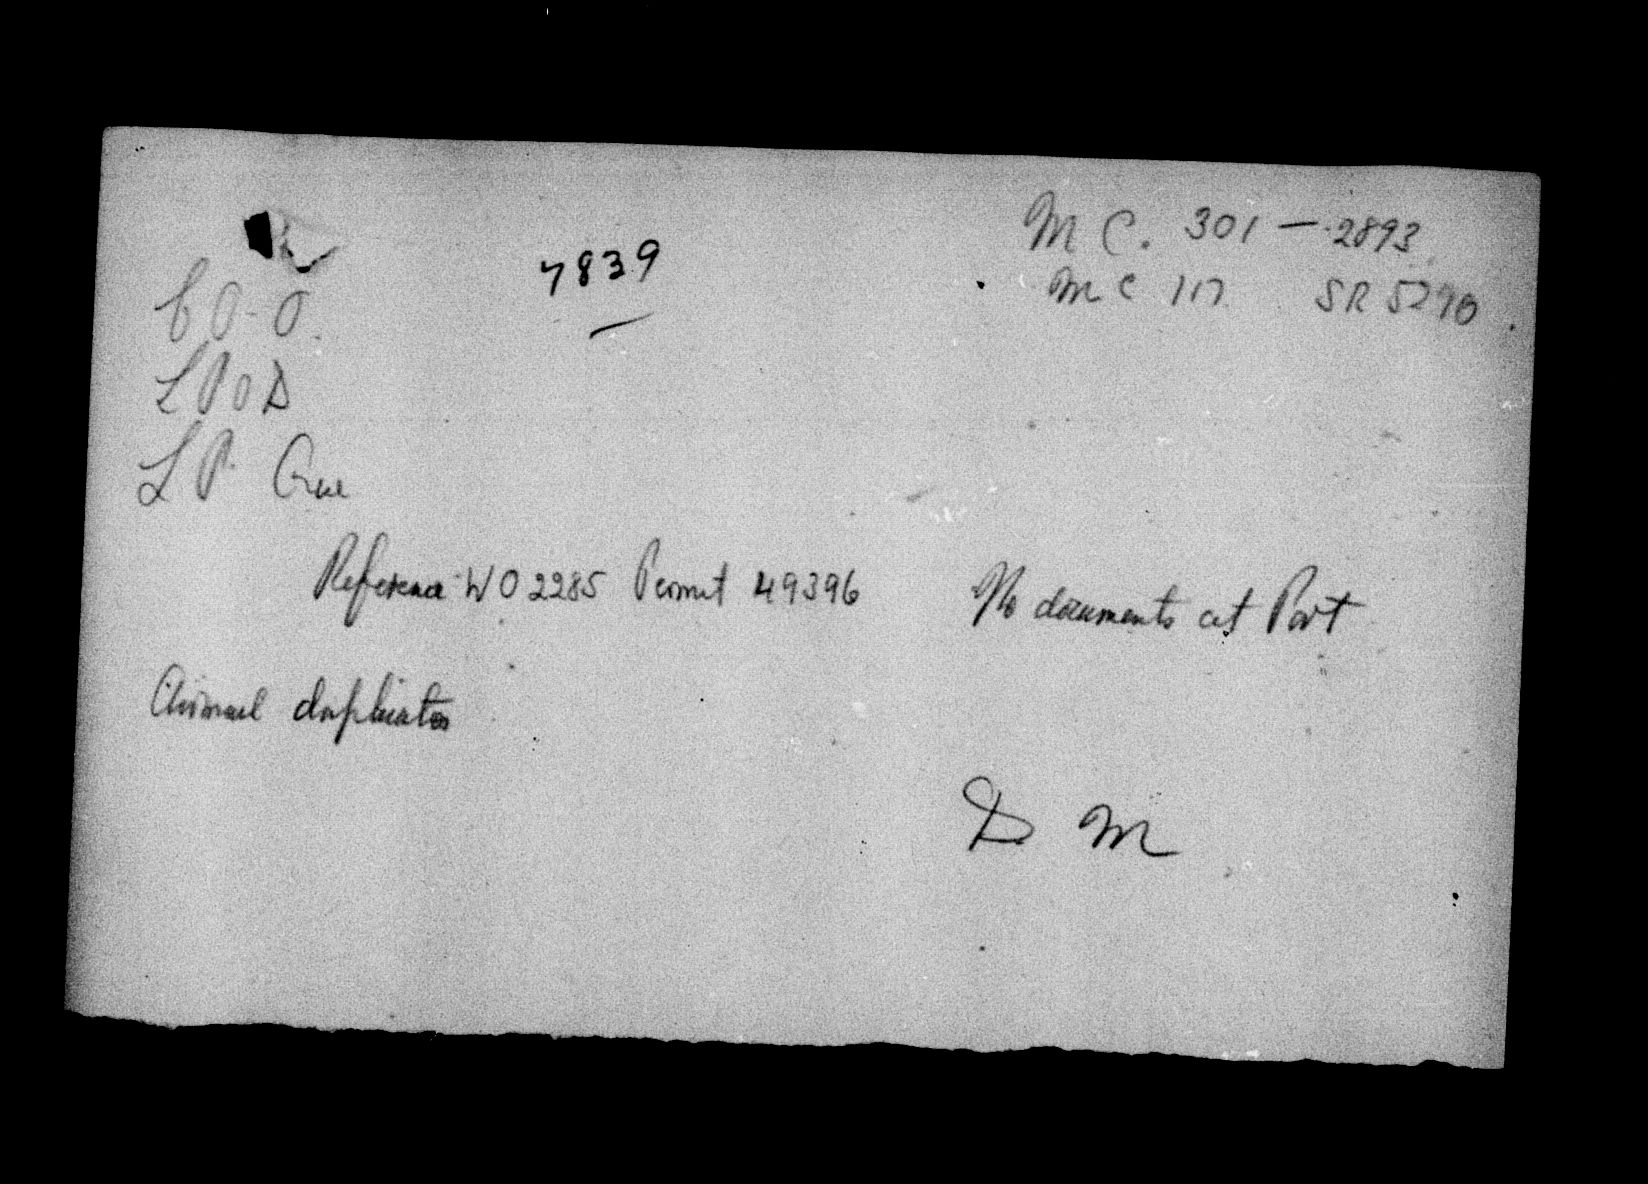 7839
M C. 301 — 2893
M C 117 SR 5270
C O - O.
L P O D
L P. Que
Reference WO 2285 Permit 49396 No documents at Port
Airmail duplicates
D M